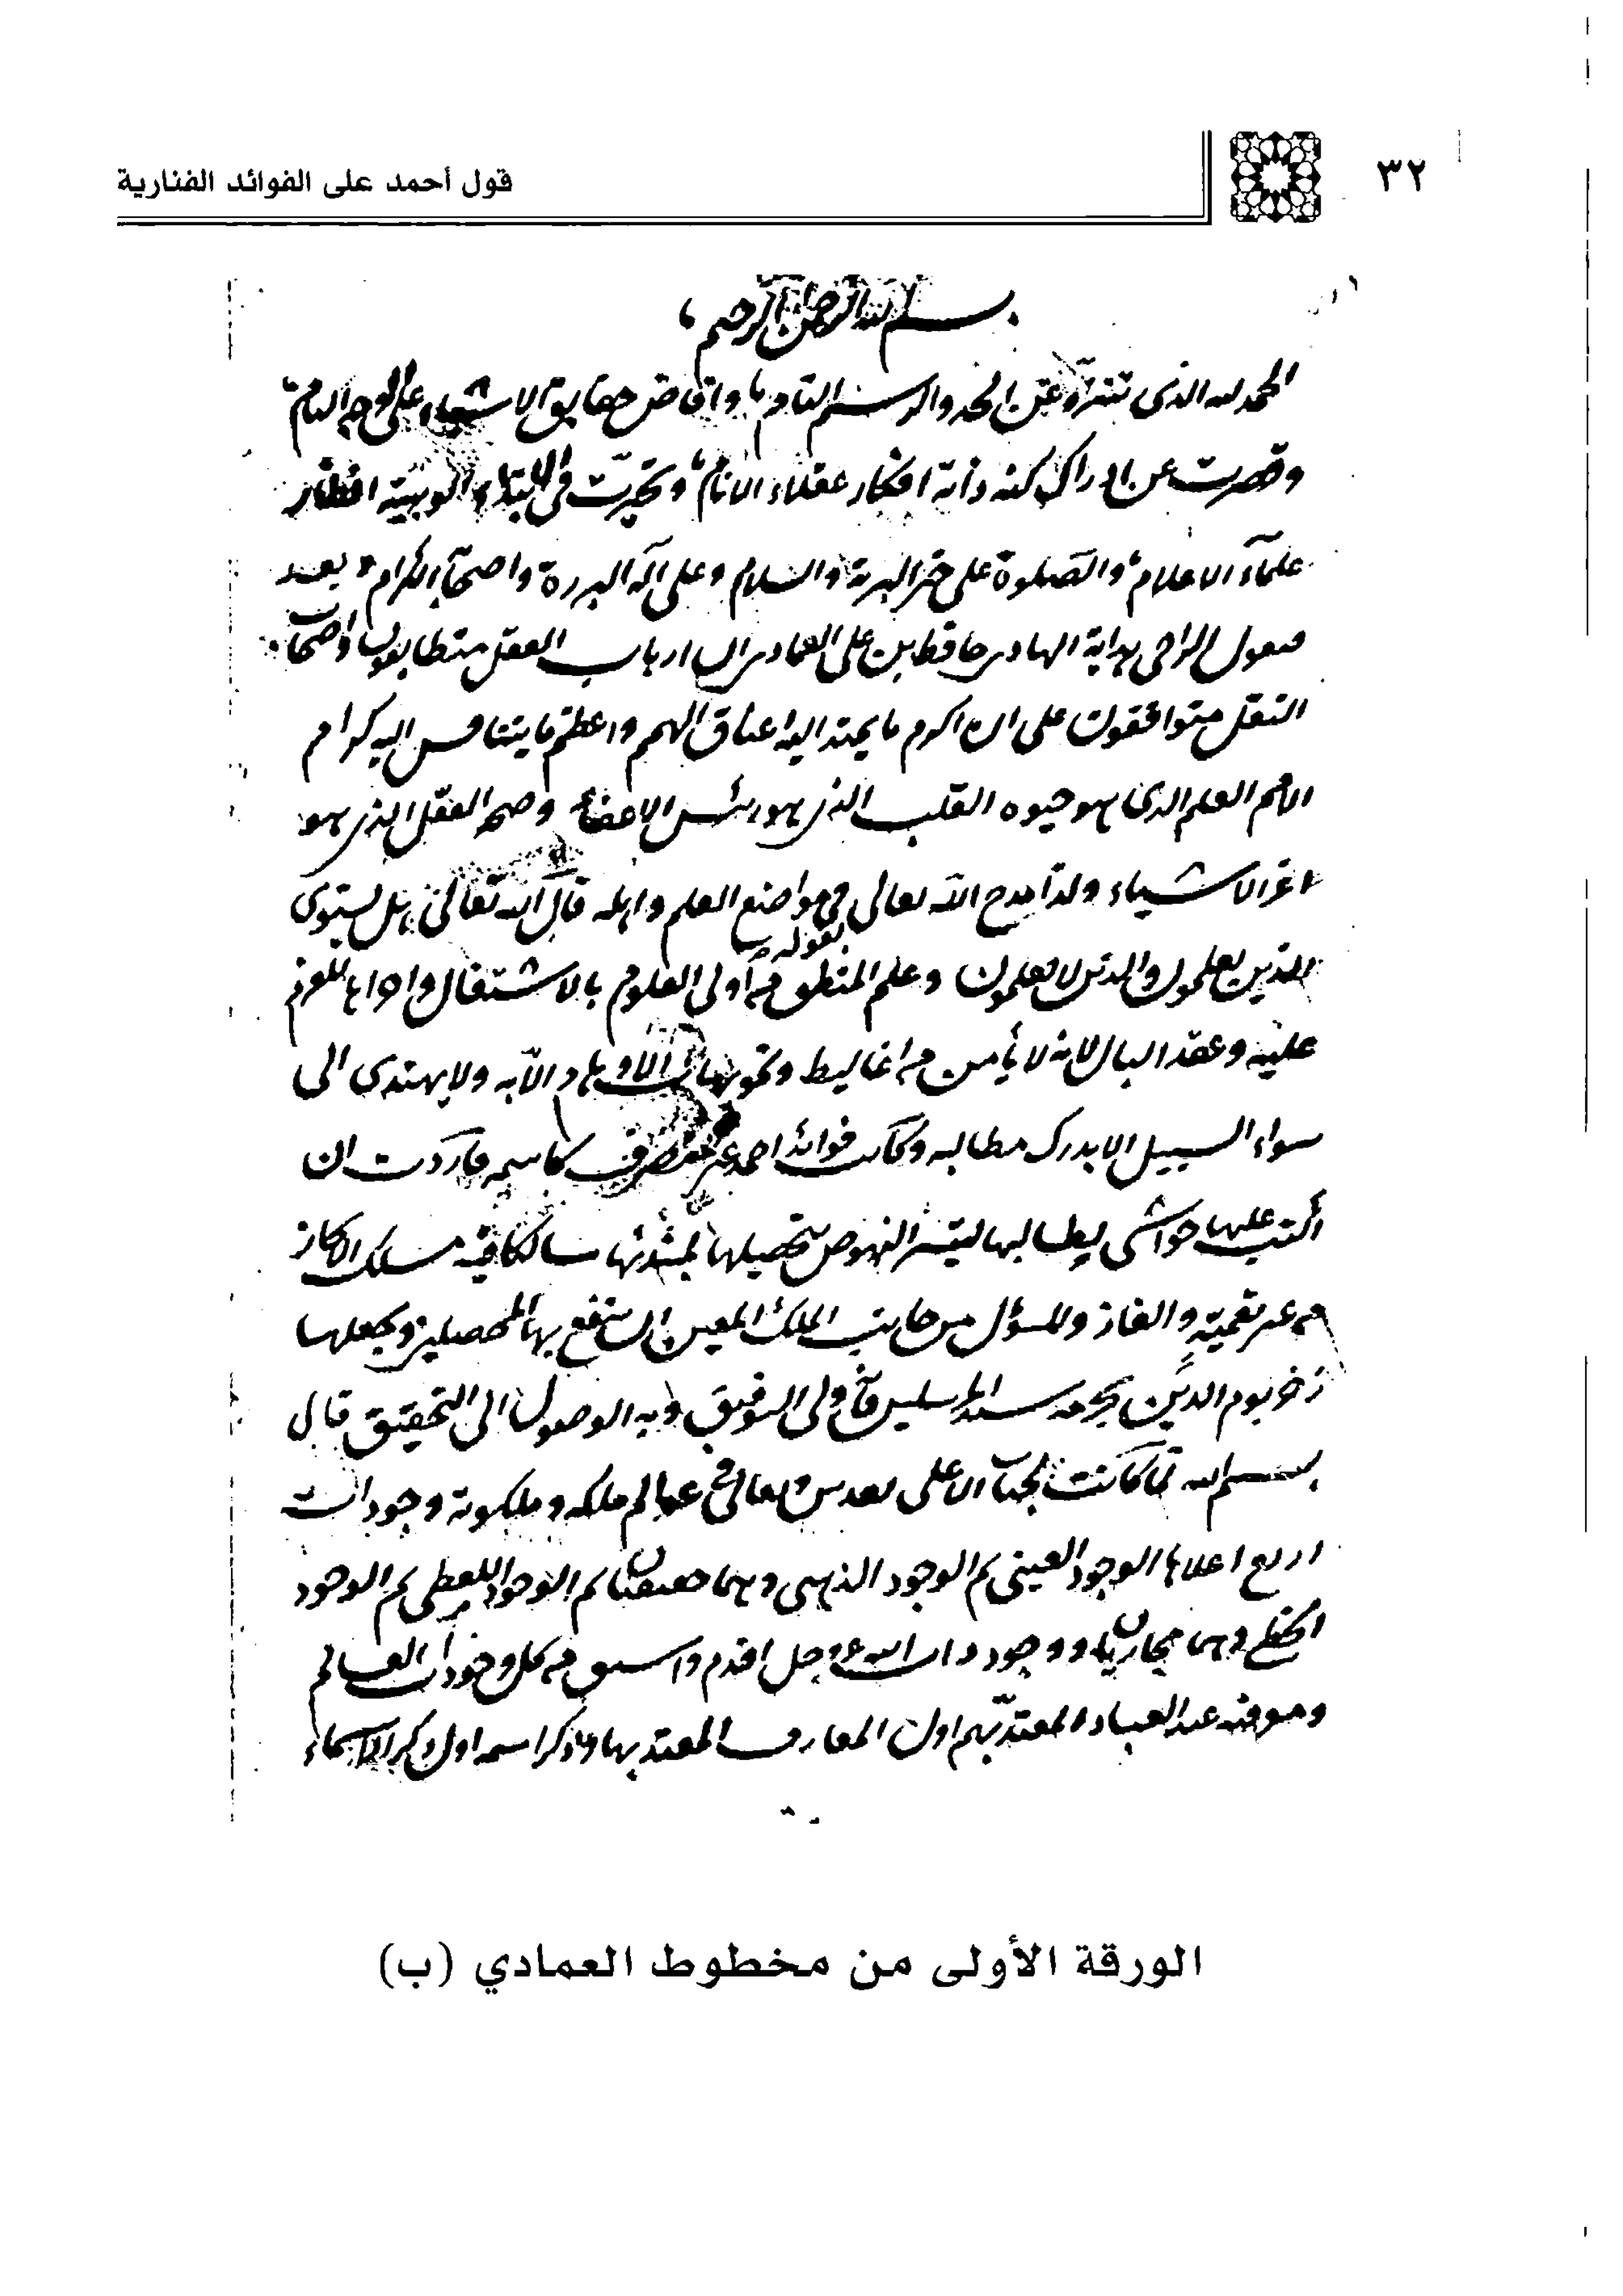 ٣٢
قول أحمد على الفوائد الفنارية
بسم الله الرحمن الرحيم
الحمد لله الذى تنزه عن الحد والرسم التام وافاض حقايق الاشياء على الوجه التام
وقصرت عن ادراك كنه ذاته افكار عقلاء الانام وتحيرت فى الوهيته انظار
علماء الاعلام والصلوة على خير البرية والسلام وعلى آله البررة واصحابه الكرام وبعد
فيقول الراجى هداية الهادى حافظ بن على العمادى ان ارباب العقل متطابقون واصحاب
النقل متوافقون على ان اكرم ما يمتد اليه اعناق الهمم واعظم ما يتنافس اليه كرام
الامم العلم الذى هو حيوه القلب الذى هو رئيس الاعضاء وصحة العقل الذى هو
اعز الاشياء ولذا مدح الله تعالى فى مواضع العلم واهله قال الله تعالى هل يستوى
بقوله
الذين يعلمون والذين لا يعلمون وعلم المنطق من اولى العلوم بالاشتغال واحراها للعزم
عليه وعقد البال لانه لا يأمن من اغاليط الا به ولا يهتدى الى
سواء السبيل الا بدرك مطالبه وكانت فوائد احمد غير منصرف كاسمه فاردت ان
اكتب عليها حواشى ليتيسر النهوض بتحصيلها سالكا فيه مسلك الايجاز
من غير تعمية والغاز والمسؤل من جانب الملك المعين ان ينتفع بها المحصلين ويجعلها
ذخر يوم الدين بحرمة سيد المرسلين فانه ولى التوفيق وبه الوصول الى التحقيق قال
بسم الله لما كانت لجناب الاعلى تقدس وتعالى فى عوالم ملكه وملكوته وجودات
اربع اعلاها الوجود العينى ثم الوجود الذهنى وهما حقيقيان ثم الوجود اللفظى ثم الوجود
الخطى وهما مجازيان ووجود ذات الله عز وجل اقدم واسبق من كل وجودات العالم
ومعرفته عند العباد المعتد بهم اول المعارف المعتد بها وذكر اسمه اول ذكر الاسماء
الورقة الأولى من مخطوط العمادي (ب)